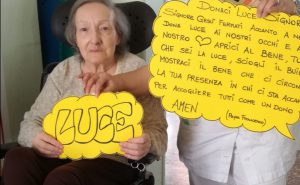 LUCE
DONACI LUCE SIGNOR
SIGNORE GESÙ FERMATI ACCANTO A NO
DONA LUCE AI NOSTRI OCCHI E AL
NOSTRO ♥ APRICI AL BENE, TU
CHE SEI LA LUCE, SCIOGLI IL BUI
MOSTRACI IL BENE CHE CI CIRCON
LA TUA PRESENZA IN CHI CI STA ACCA
PER ACCOGLIERE TUTTI COME UN DONO
AMEN (Papa Francesco)